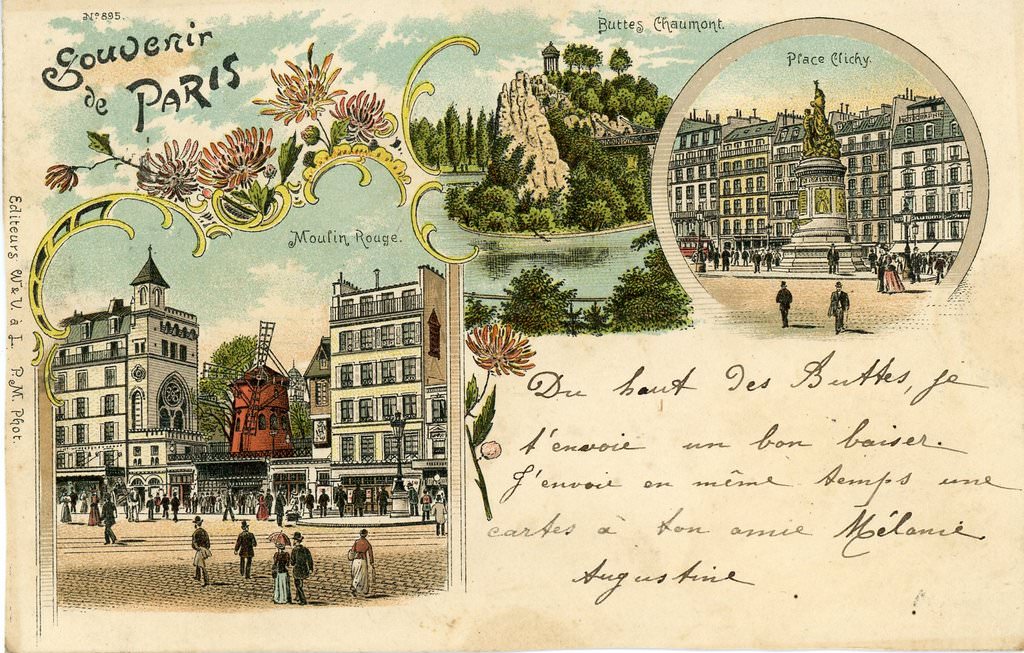 No 895.
Souvenir
de PARIS
Buttes Chaumont.
Place Clichy.
Moulin Rouge.
Editeurs W. & V. à L. P.M. Phot.
Du haut des Buttes, je
t'envoie un bon baiser.
J'envoie en même temps une
cartes à ton amie Mélanie
Augustine